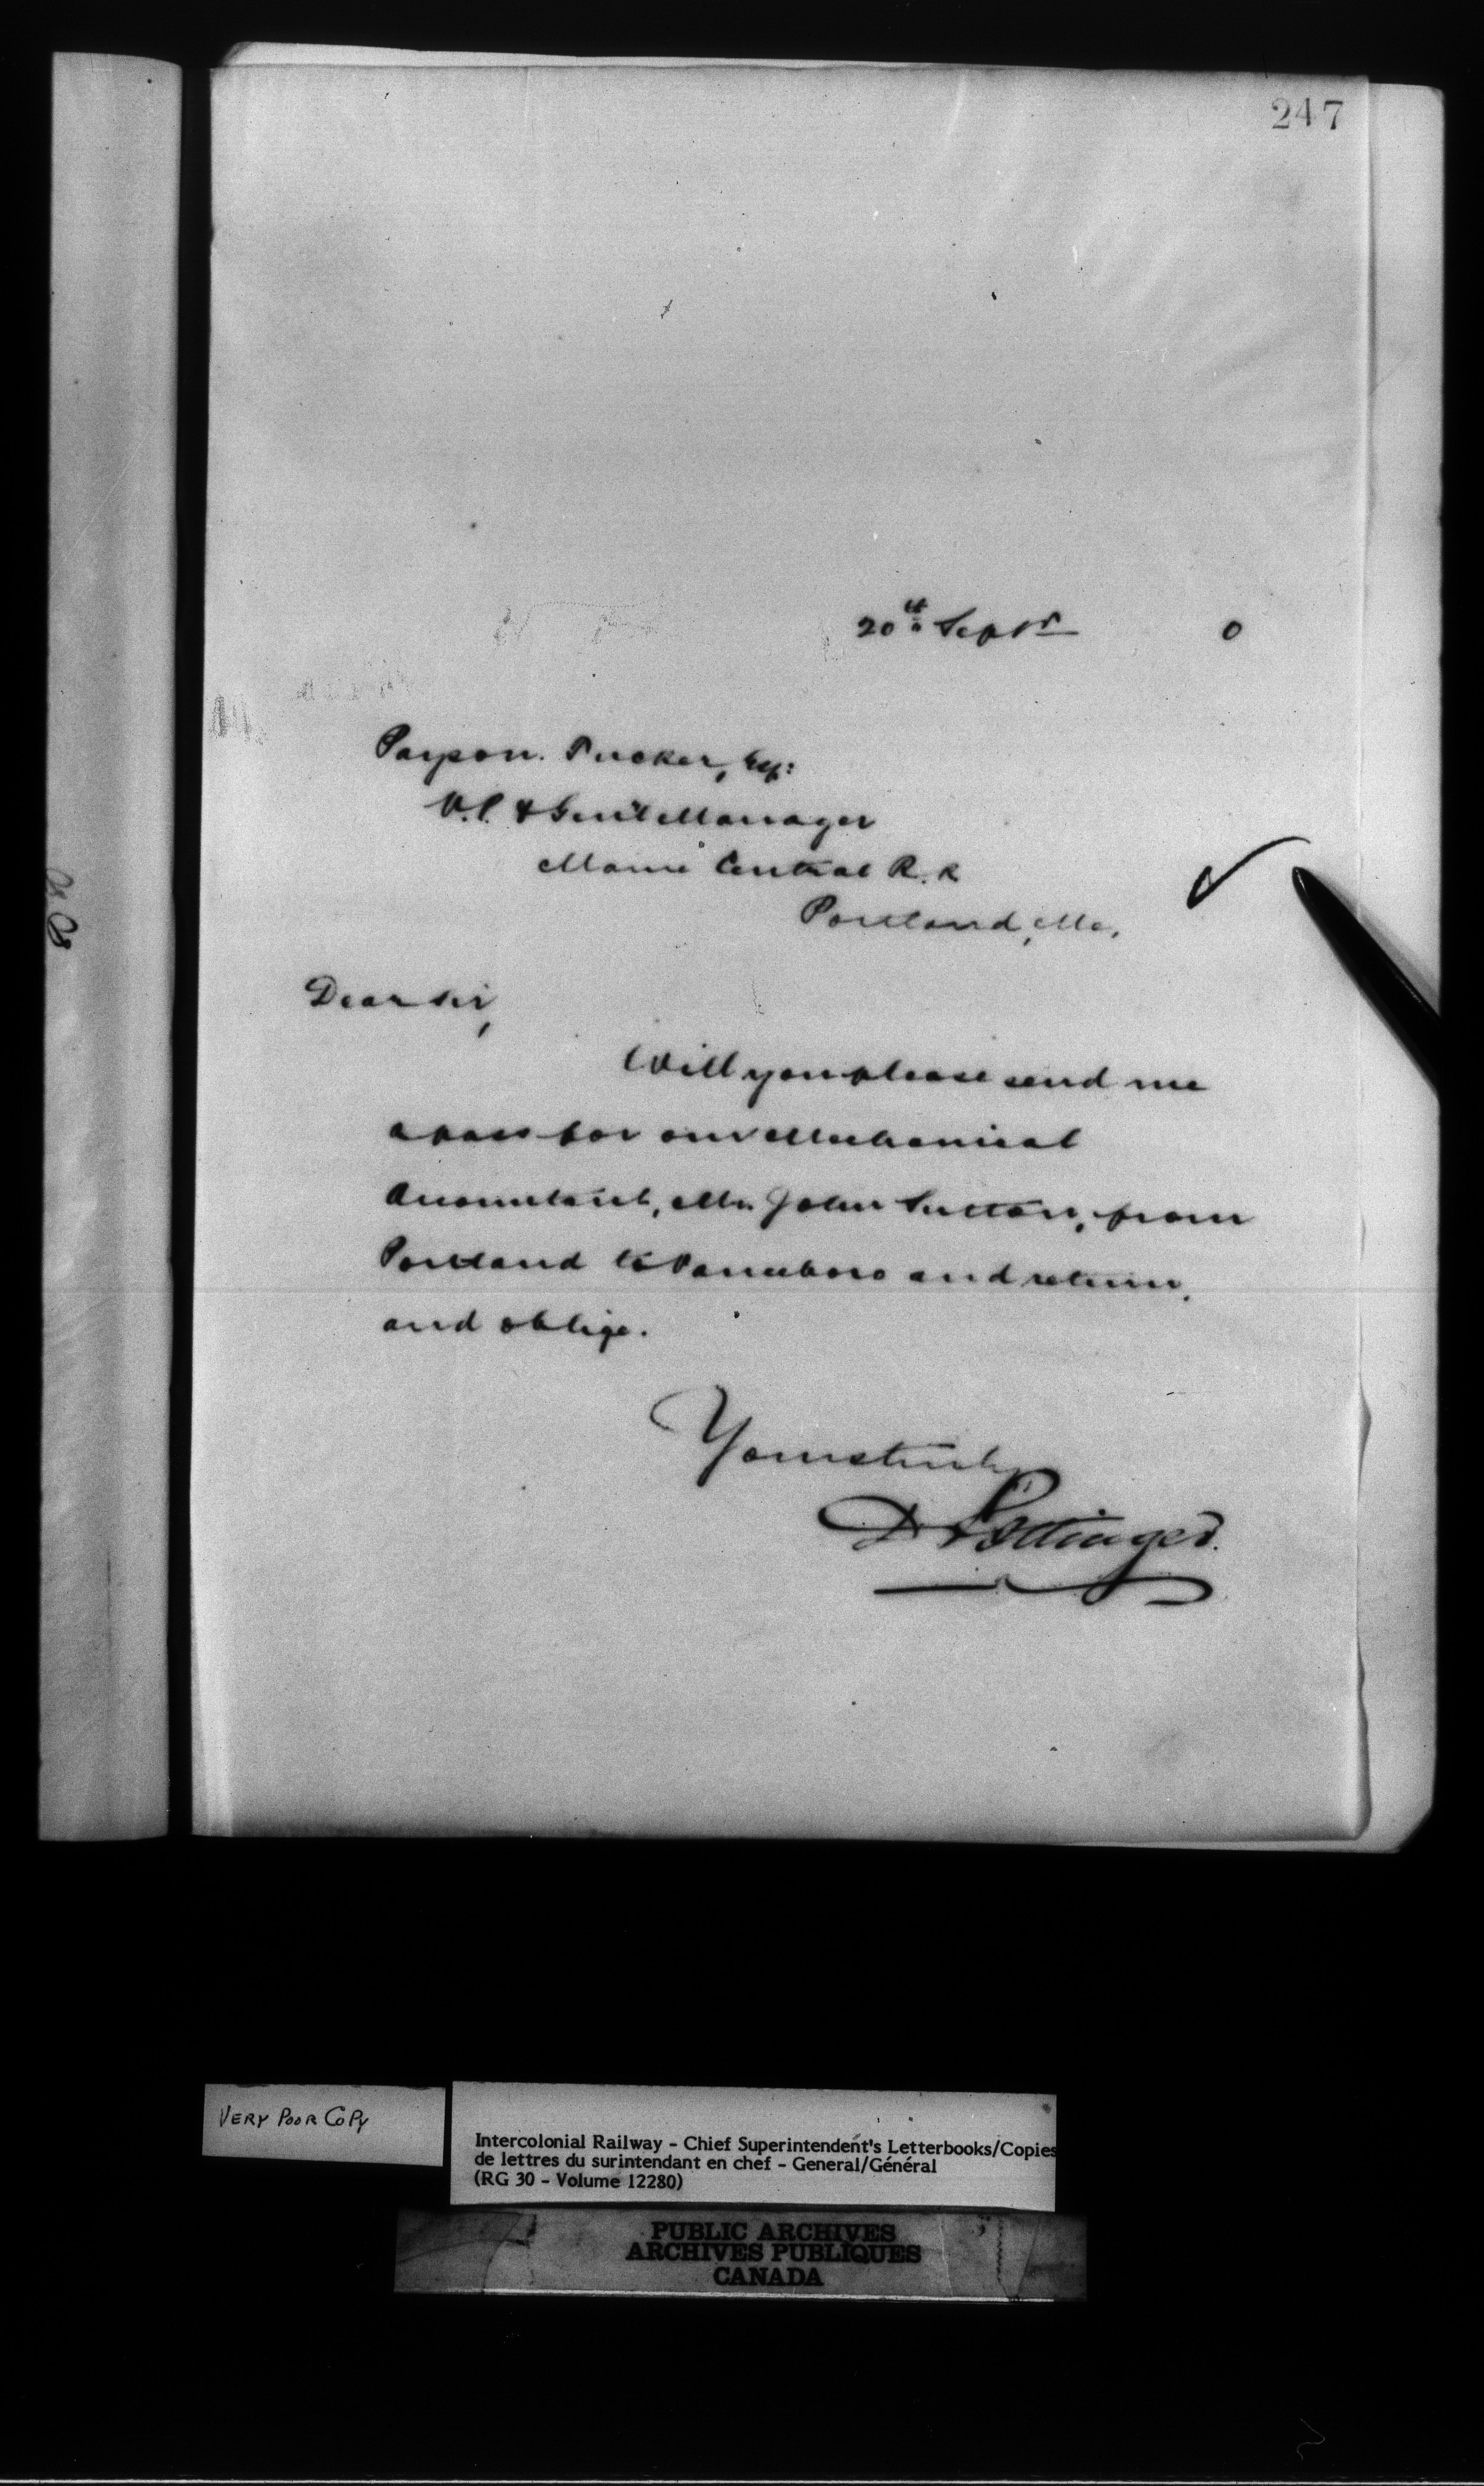 247
20th Septr 0
Payson Tucker, Esq:
V.P. & Gen'l Manager
Maine Central R.R
Portland, Me.
Dear Sir,
Will you please send me
a pass for our Mechanical
Accountant, Mr. John Sutton, from
Portland to Vanceboro and return,
and oblige.
Yours truly
D Pottinger.
VERY POOR COPY
Intercolonial Railway - Chief Superintendent's Letterbooks/Copies
de lettres du surintendant en chef - General/Général
(RG 30 - Volume 12280)
PUBLIC ARCHIVES
ARCHIVES PUBLIQUES
CANADA